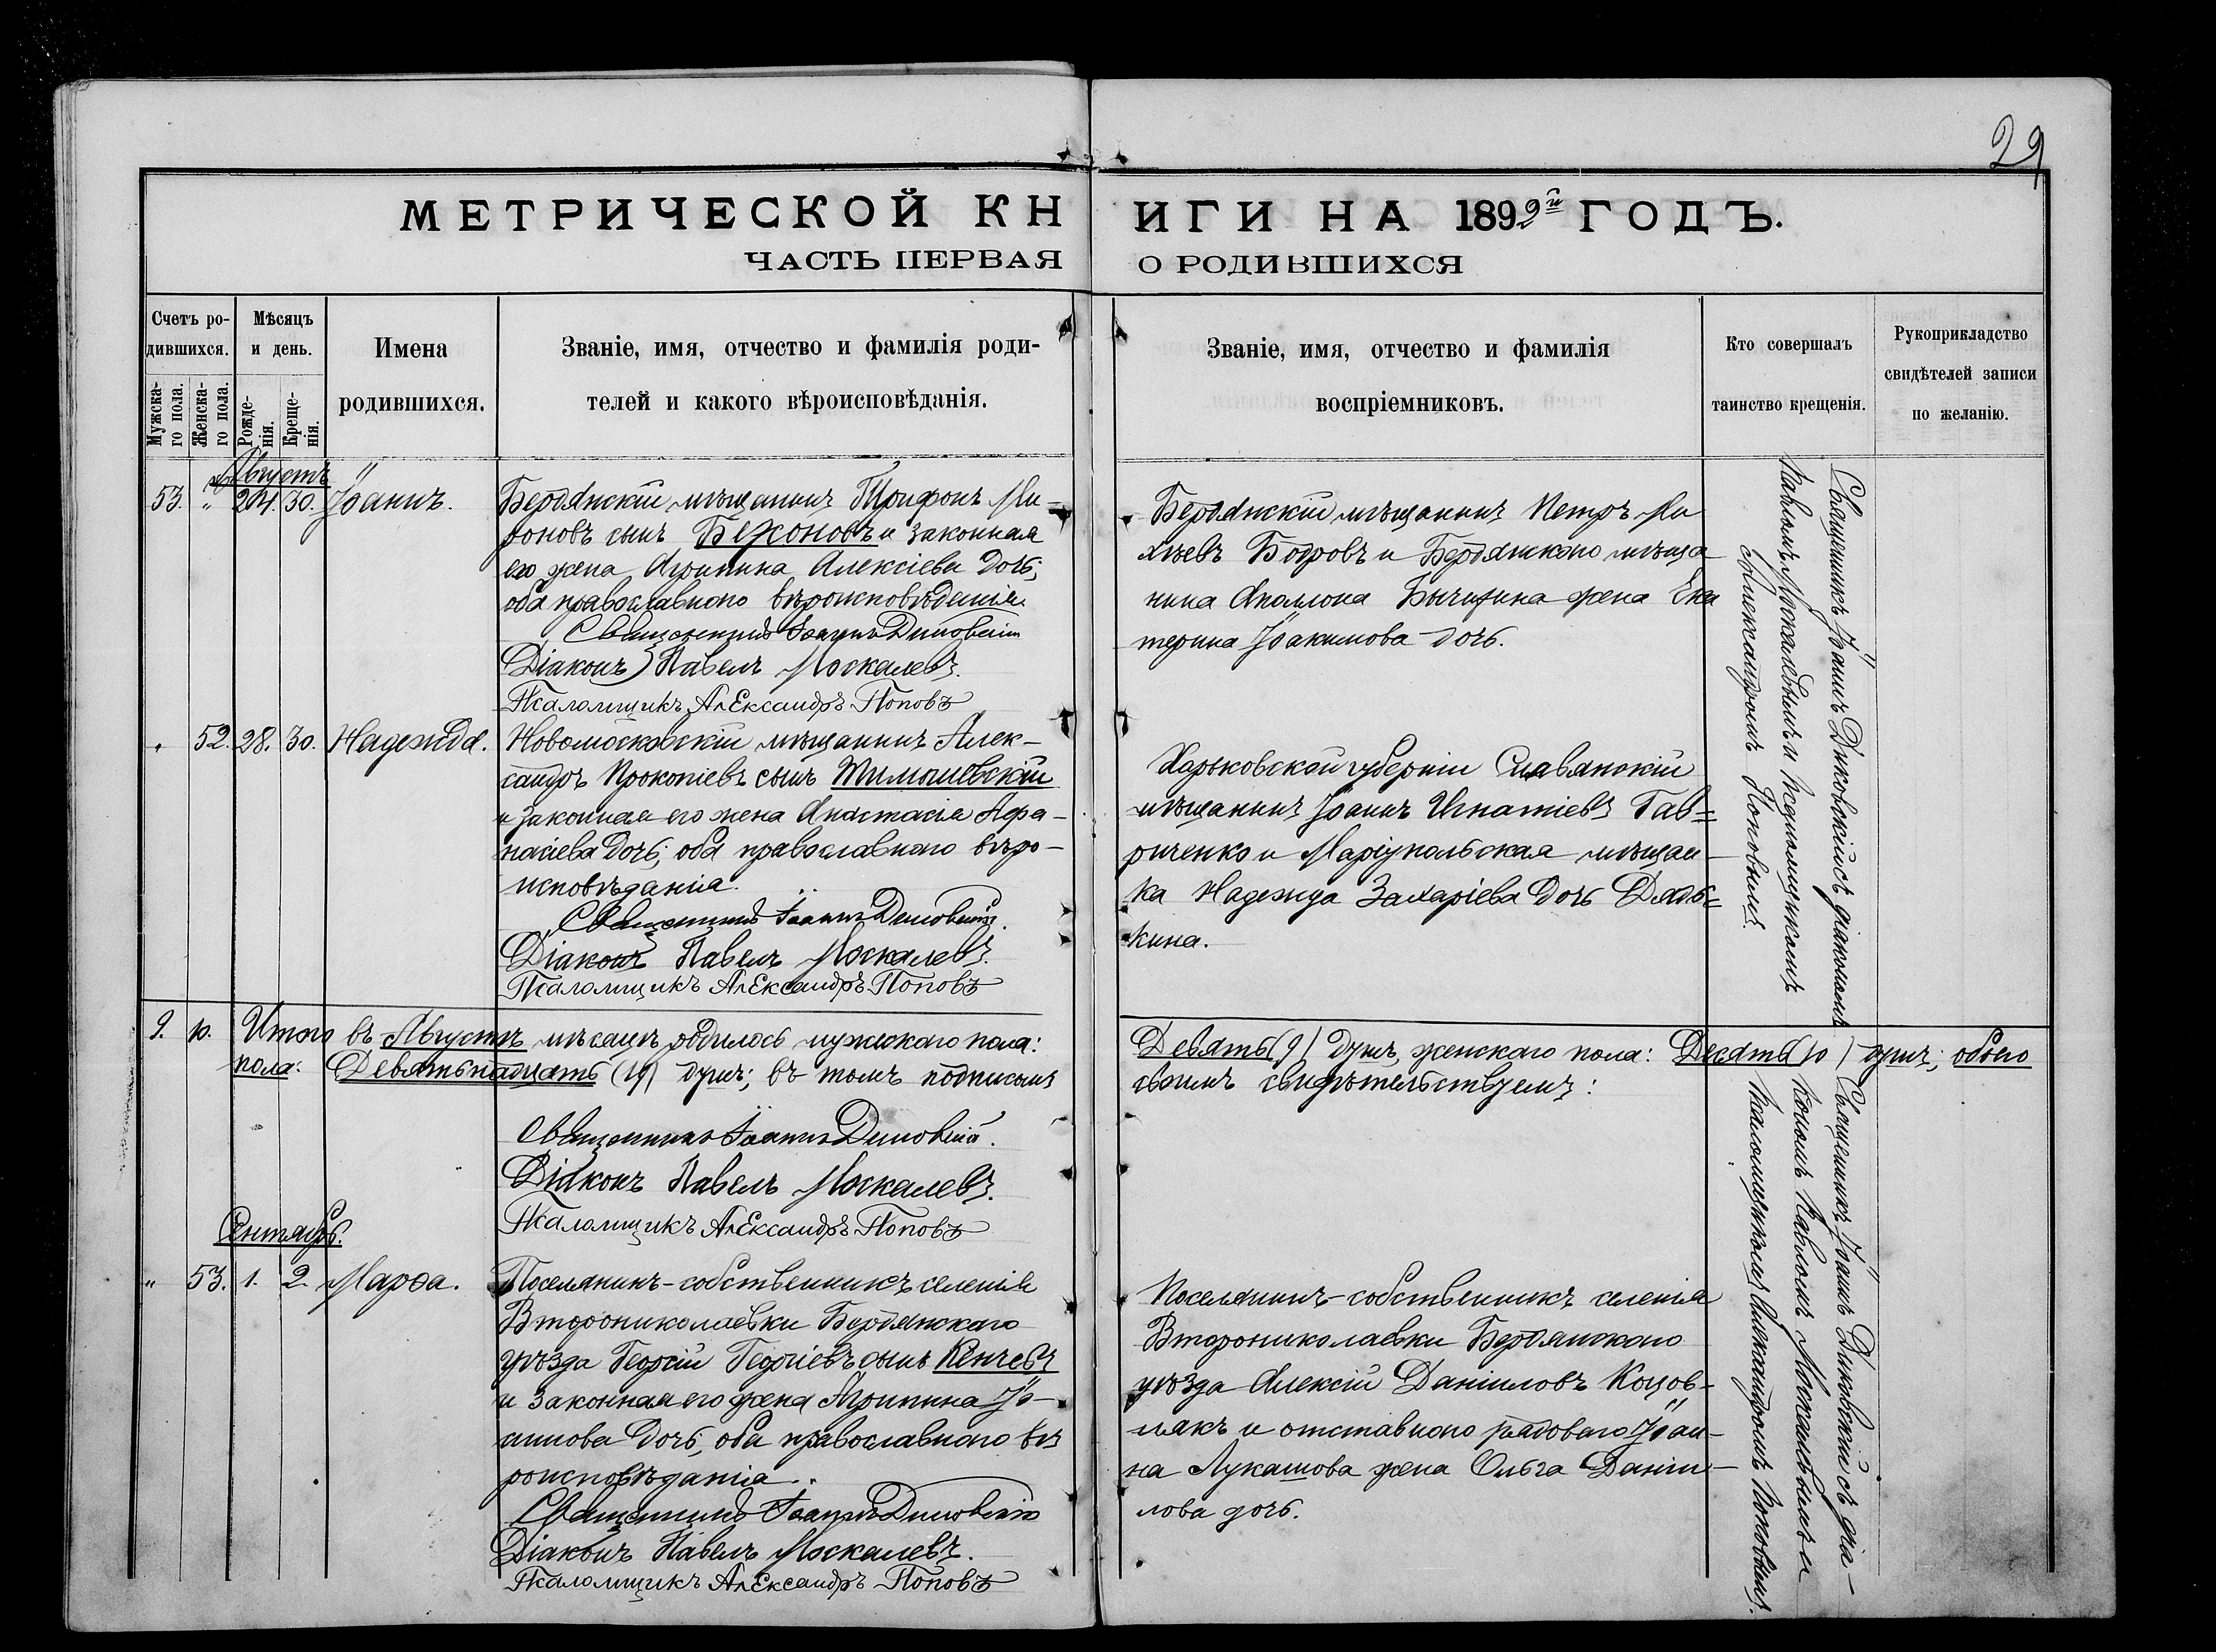 29
МЕТРИЧЕСКОЙ КНИГИ НА 1899й ГОДЪ.
ЧАСТЬ ПЕРВАЯ О РОДИВШИХСЯ
Счетъ ро-
дившихся.
Мужска-
го пола.
Женска-
го пола.
Мѣсяцъ
и день.
Рожде-
нія.
Креще-
нія.
Имена
родившихся.
Званіе, имя, отчество и фамилія роди-
телей и какого вѣроисповѣданія.
Званіе, имя, отчество и фамилія
воспріемниковъ.
Кто совершалъ
таинство крещенія.
Рукоприкладство
свидѣтелей записи
по желанію.
Августъ
53. " 24. 30. Іоаннъ.
Бердянскій мѣщанинъ Трифонъ Ми-
роновъ сынъ Бежоновъ и законная
его жена Агрипина Алексіева дочь;
оба православнаго вѣроисповѣданія.
Священникъ Іоаннъ Диковскій
Діаконъ Павелъ Москалевъ.
Псаломщикъ Александръ Поповъ
Бердянскій мѣщанинъ Петръ Ми
хѣевъ Бобровъ и Бердянскаго мѣща
нина Аполлона Бычихина жена Ека
терина Іоакимова дочь.
Священникъ Іоаннъ Диковскій съ діакономъ
Павломъ Москалевымъ и псаломщикомъ
Александромъ Поповымъ.
" 52. 28. 30. Надежда.
Новомосковскій мѣщанинъ Алек-
сандръ Прокопіевъ сынъ Тимошевскій
и законная его жена Анастасія Афа-
насіева дочь; оба православнаго вѣро-
исповѣданія.
Священникъ Іоаннъ Диковскій.
Діаконъ Павелъ Москалевъ.
Псаломщикъ Александръ Поповъ
Харьковской губерніи Славянскій
мѣщанинъ Іоаннъ Игнатіевъ Гав=
риченко и Маріупольская мѣщан-
ка Надежда Захаріева дочь Дядь=
кина.
9. 10. Итого въ Августѣ мѣсяцѣ родилось мужескаго пола: Девять (9) душъ, женскаго пола: Десять (10) душъ; обоего
пола: Девятьнадцать (19) душъ; въ томъ подписомъ своимъ свидѣтельствуемъ:
Священникъ Іоаннъ Диковскій.
Діаконъ Павелъ Москалевъ.
Псаломщикъ Александръ Поповъ
Сентябрь.
" 53. 1. 2. Марѳа.
Поселянинъ-собственникъ селенія
Второниколаевки Бердянскаго
уѣзда Георгій Георгіевъ сынъ Кенчевъ
и законная его жена Агрипина Іо-
анова дочь, оба православнаго вѣ
роисповѣданія.
Священникъ Іоаннъ Диковскій
Діаконъ Павелъ Москалевъ.
Псаломщикъ Александръ Поповъ
Поселянинъ-собственникъ селенія
Второниколаевки Бердянскаго
уѣзда Алексій Даніиловъ Коцов-
лакъ и отставного рядоваго Іоан-
на Лукашова жена Ольга Даніи-
лова дочь.
Священникъ Іоаннъ Диковскій съ діа-
кономъ Павломъ Москалевымъ и
псаломщикомъ Александромъ Поповымъ.